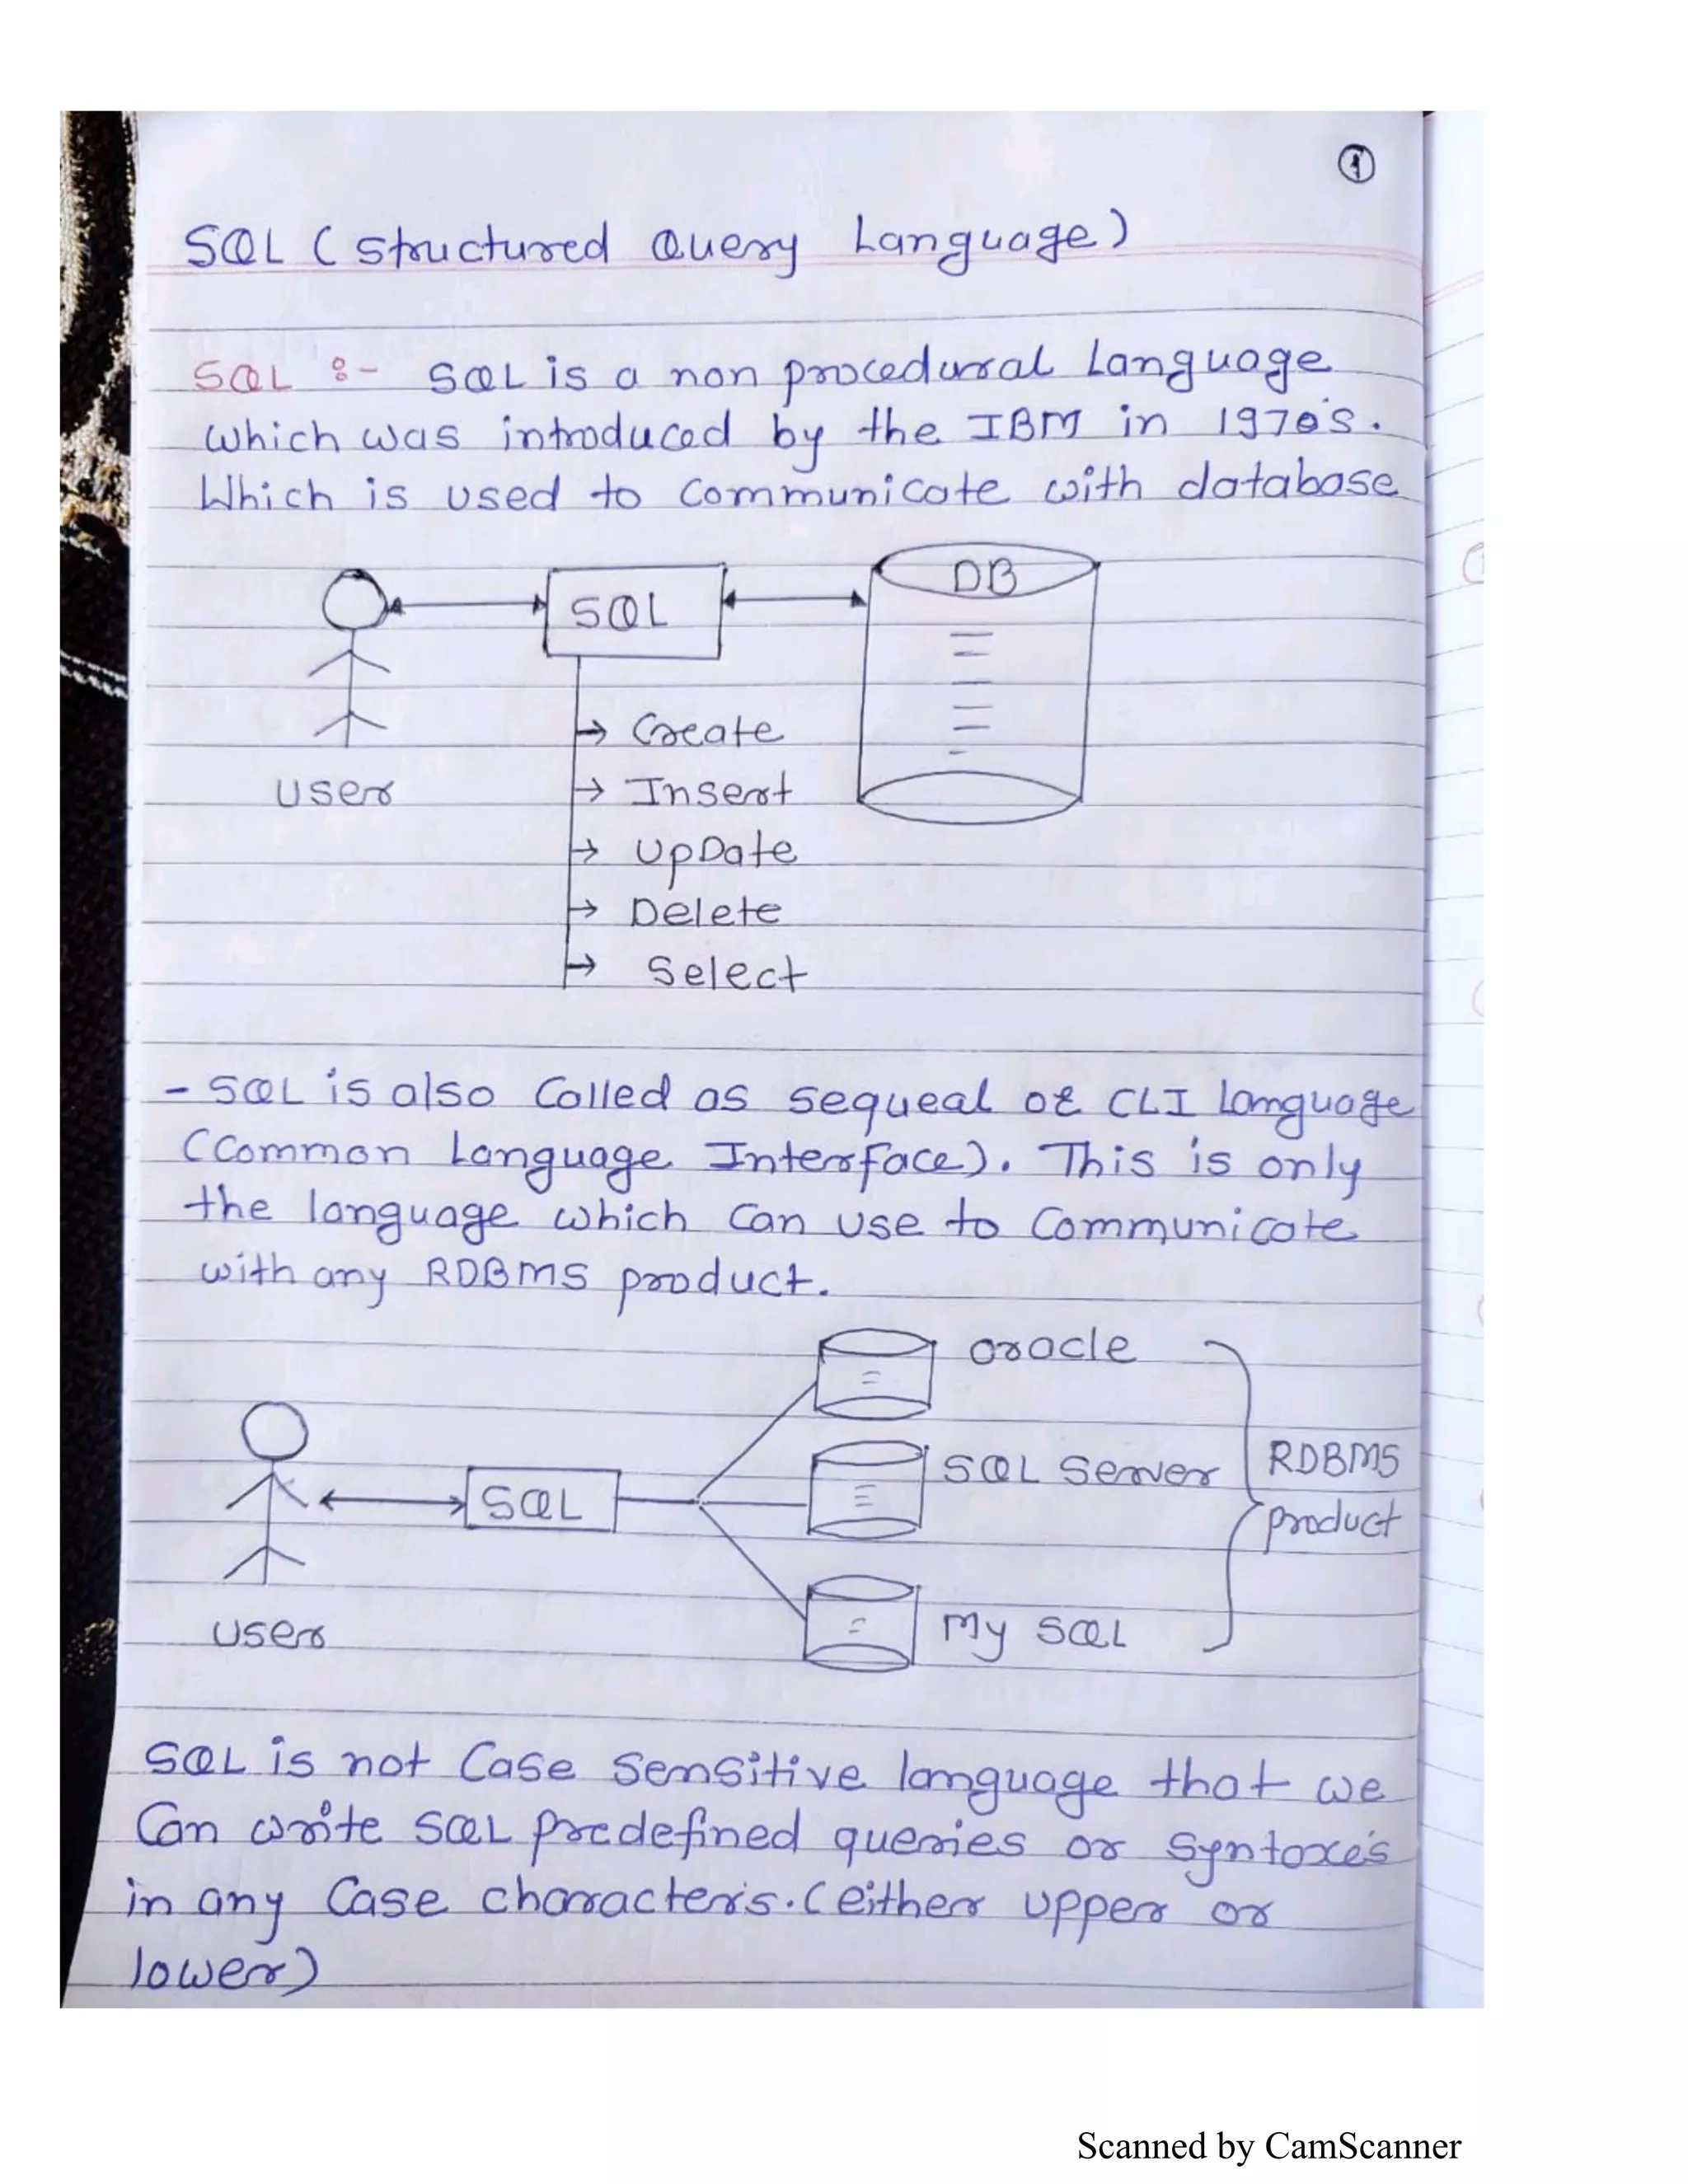 1
SQL (Structured Query Language)
SQL :- SQL is a non procedural Language
which was introduced by the IBM in 1970's.
Which is used to Communicate with database
DB
SQL
Create
User
Insert
UpDate
Delete
Select
- SQL is also Called as Sequeal or CLI Language
(Common Language Interface). This is only
the language which Can use to Communicate
with any RDBMS product.
Oracle
SQL Server
RDBMS
SQL
product
User
My SQL
SQL is not Case Sensitive language that we
Can write SQL Predefined queries or Syntaxe's
in any Case character's. (either upper or
lower)
Scanned by CamScanner